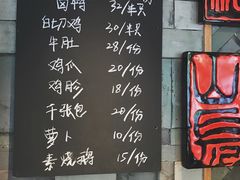 卤鸭 32/半只
白切鸡 30/半只
牛肚 28/份
鸡爪 20/份
鸡胗 18/份
千张包 20/份
萝卜 10/份
素烧鹅 15/份